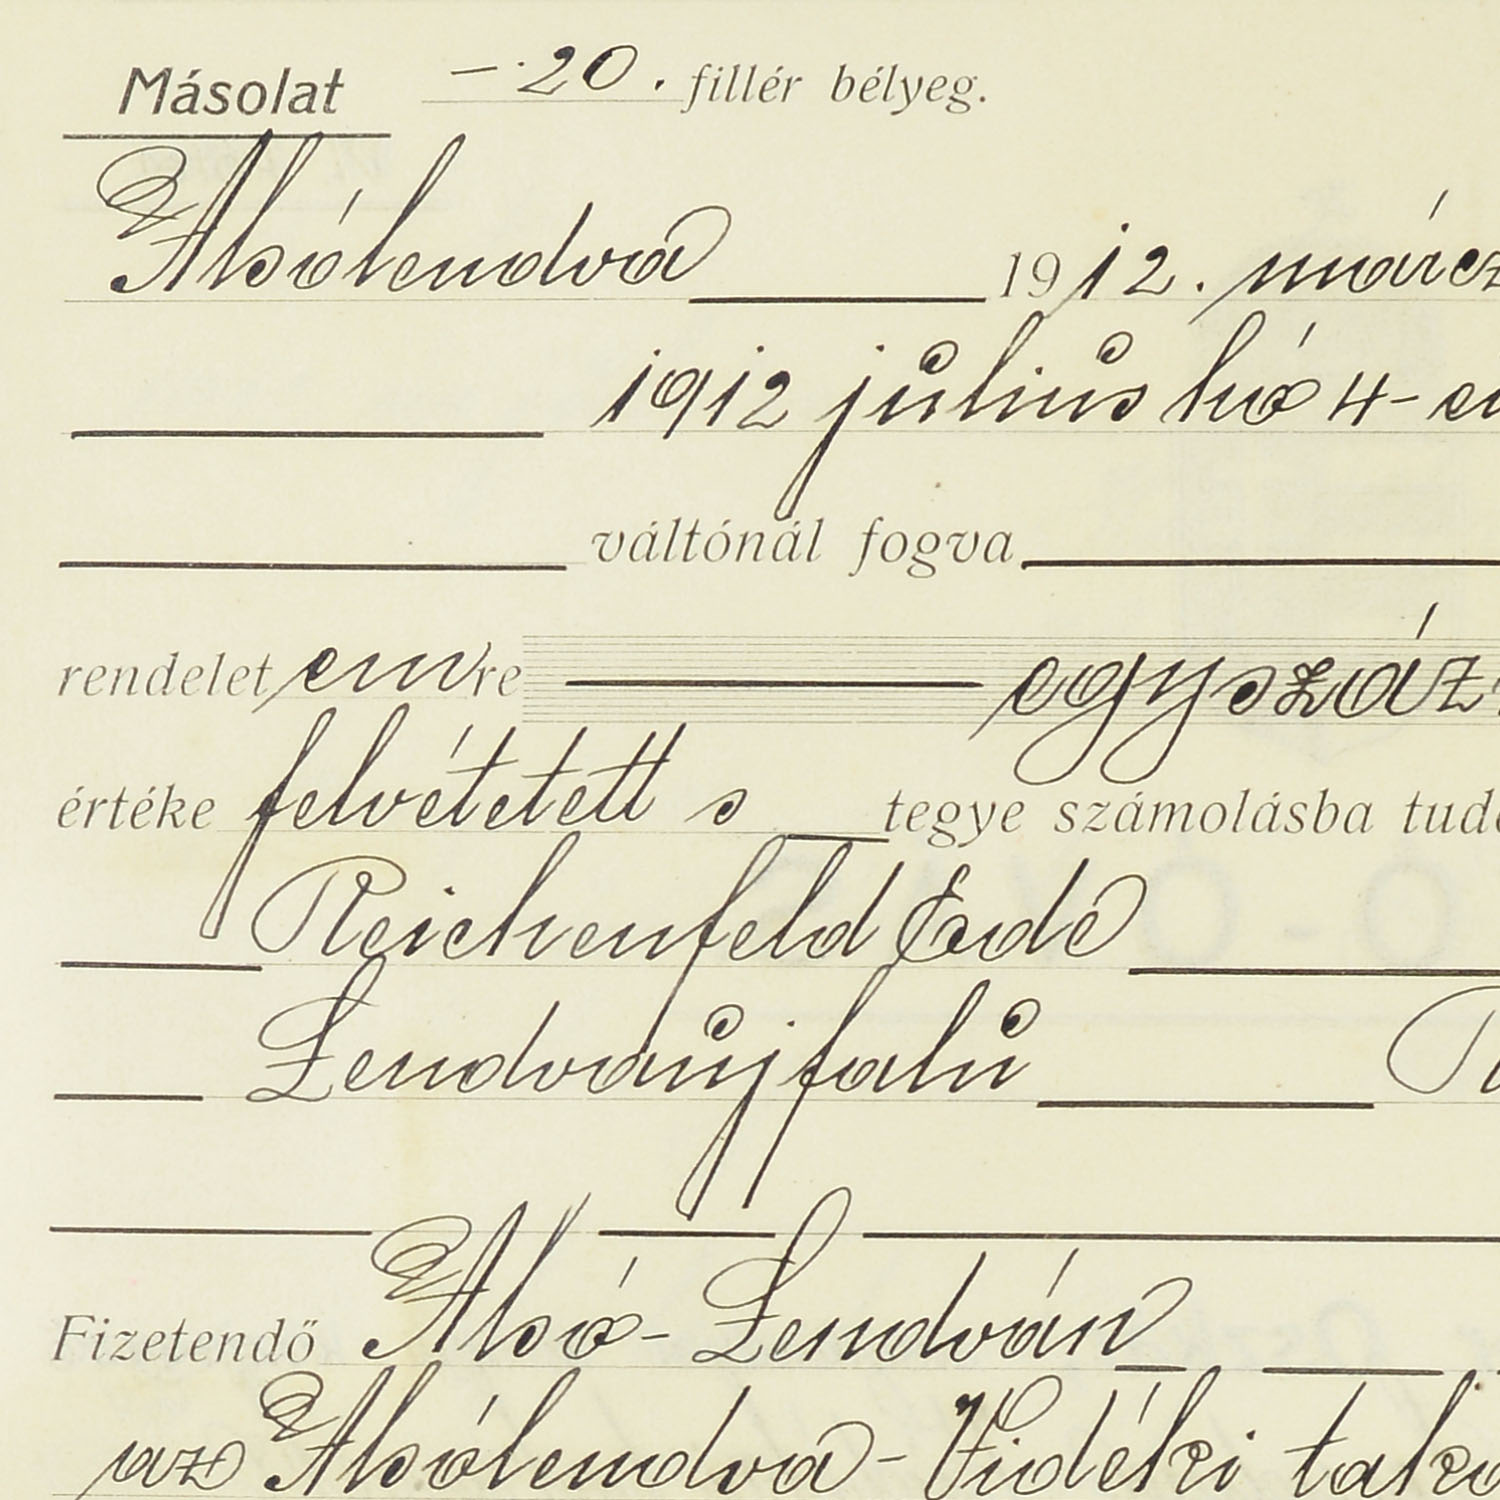 Másolat –.20. fillér bélyeg.
Alsólendva 1912. márcz
1912 július hó 4-en
váltónál fogva
rendelet emre egyszáz
értéke felvétetett s tegye számolásba tud
Reichenfeld Ede
Lendvaújfalu
Alsó-Lendván
Fizetendő
az Alsólendva-Vidéki taka